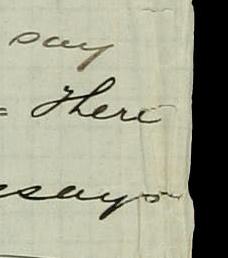 say
= Here
says